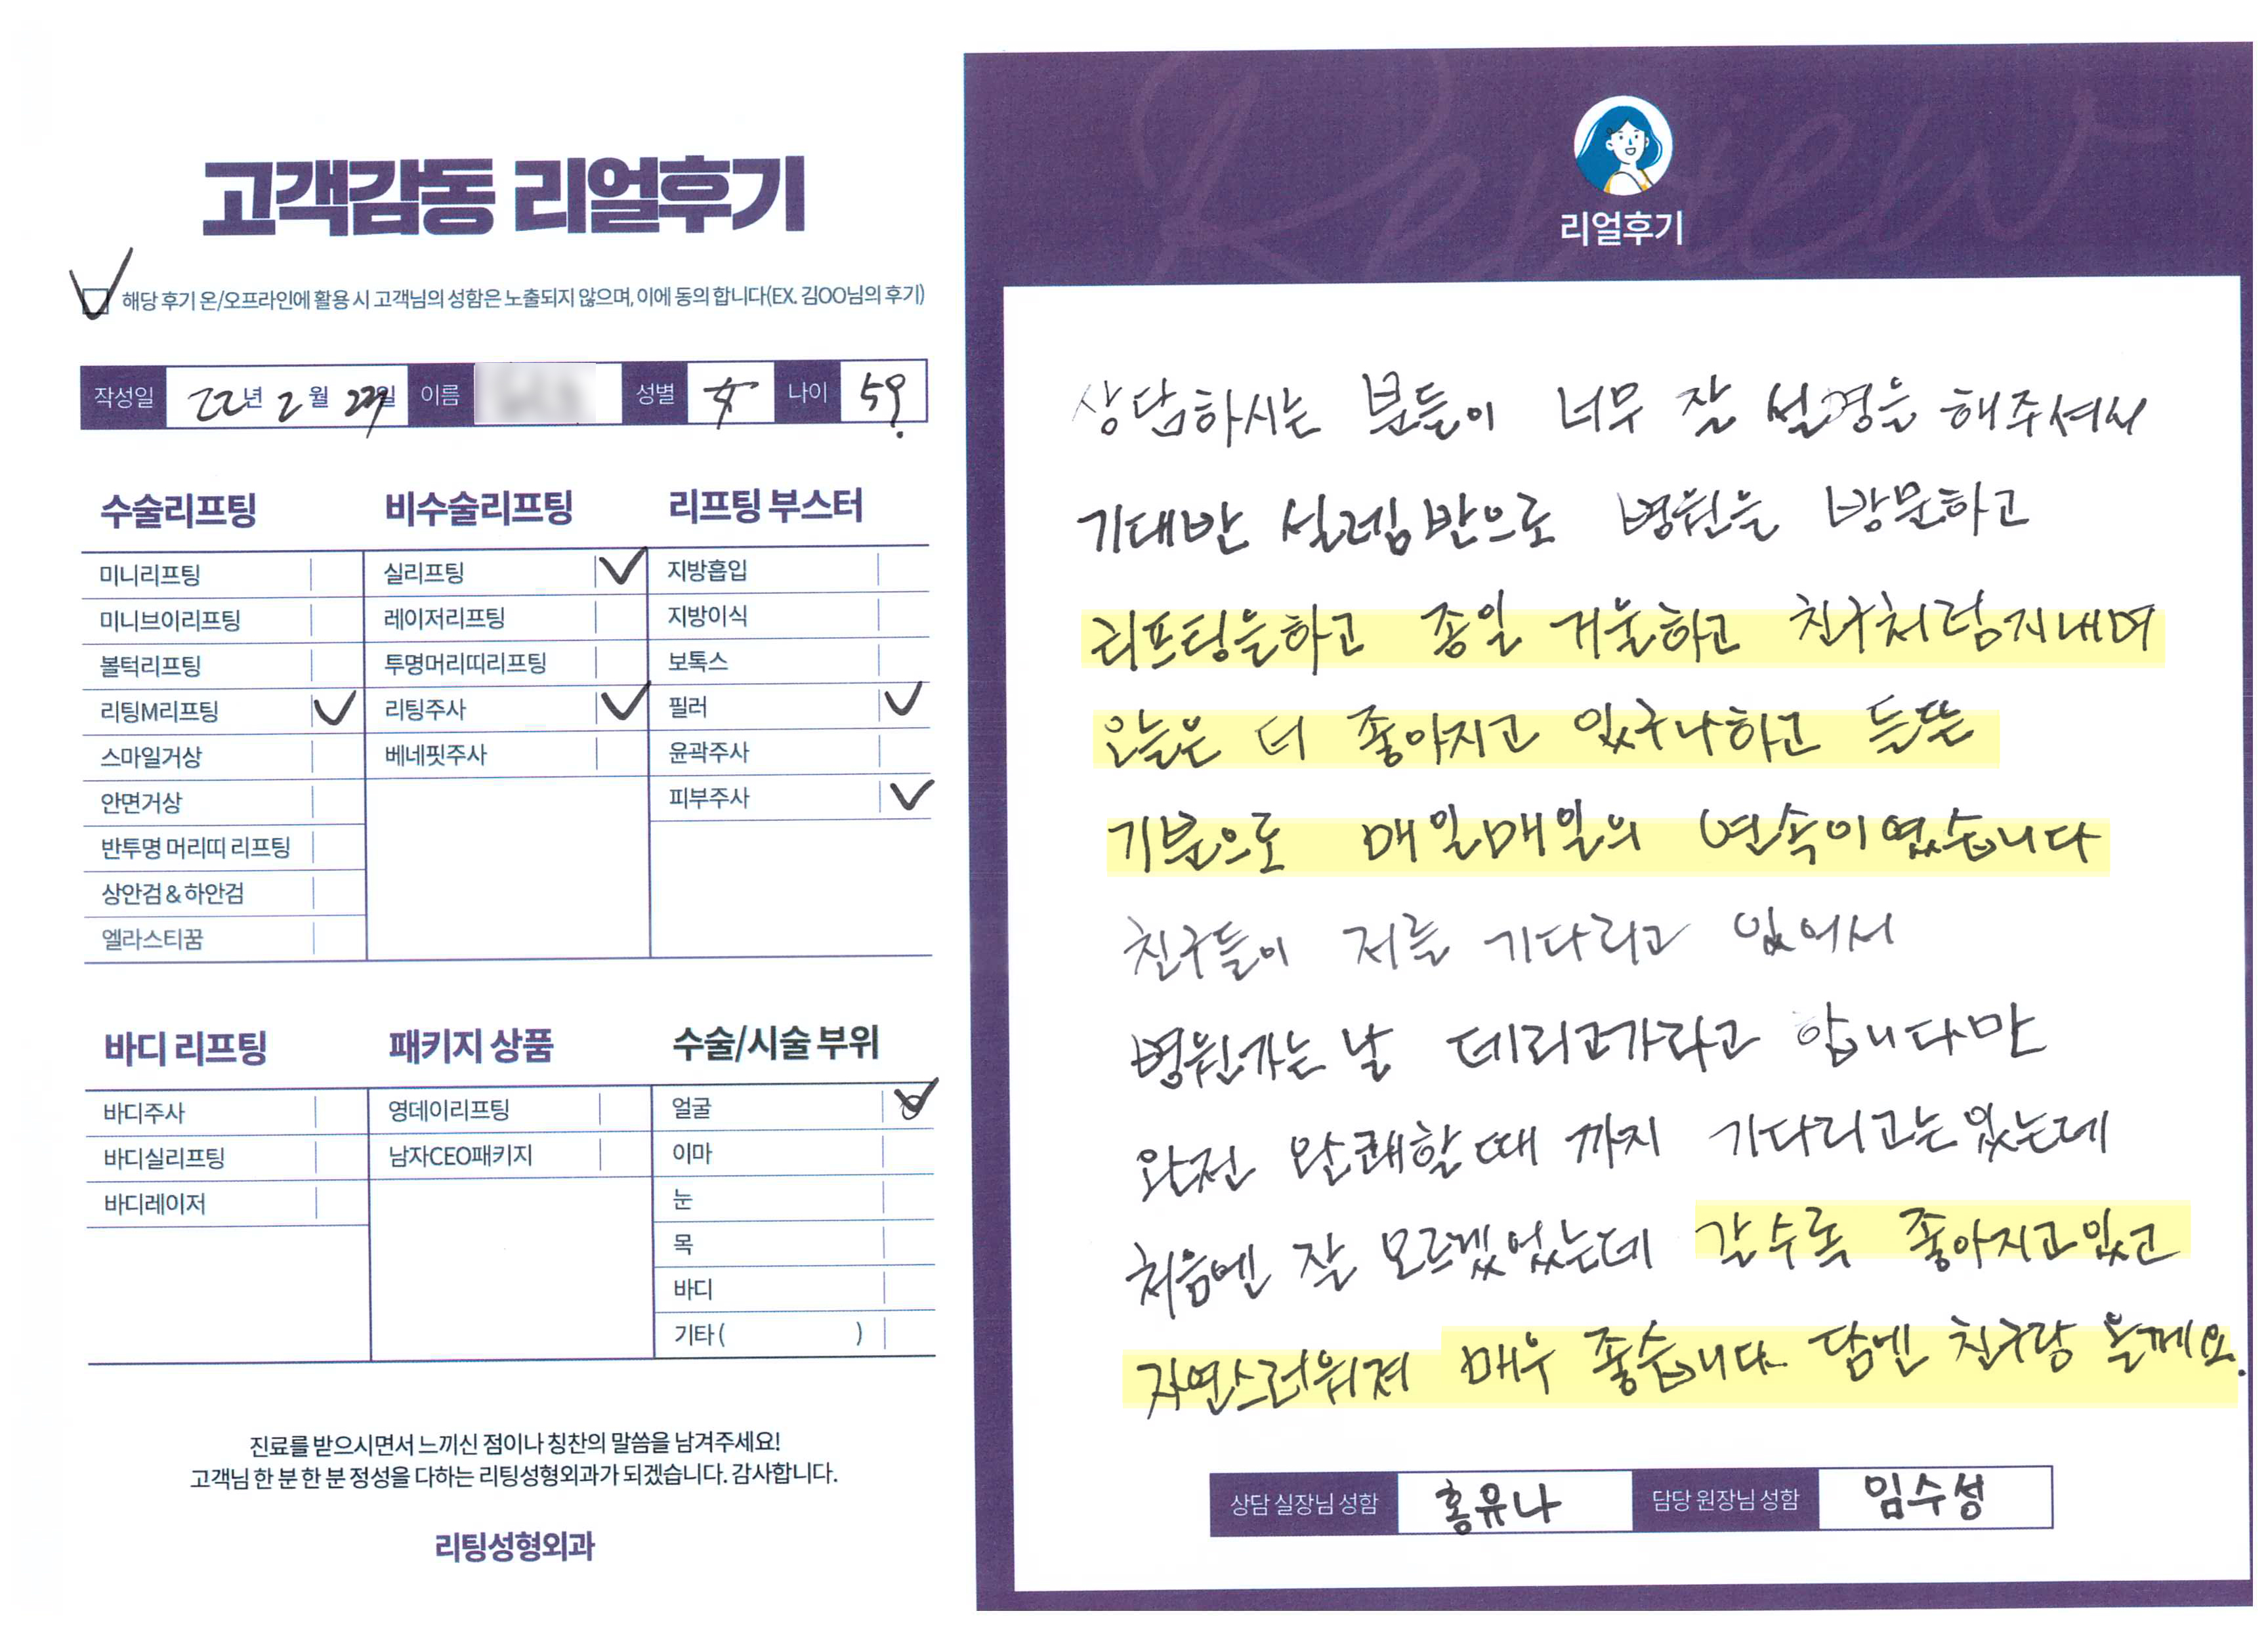 고객감동 리얼후기
해당 후기 온/오프라인에 활용 시 고객님의 성함은 노출되지 않으며, 이에 동의 합니다(EX. 김OO님의 후기)
작성일 22년 2월 27일 이름 성별 女 나이 59
수술리프팅
미니리프팅
미니브이리프팅
볼턱리프팅
리팅M리프팅
스마일거상
안면거상
반투명 머리띠 리프팅
상안검 & 하안검
엘라스티꿈
비수술리프팅
실리프팅
레이저리프팅
투명머리띠리프팅
리팅주사
베네핏주사
리프팅 부스터
지방흡입
지방이식
보톡스
필러
윤곽주사
피부주사
바디 리프팅
바디주사
바디실리프팅
바디레이저
패키지 상품
영데이리프팅
남자CEO패키지
수술/시술 부위
얼굴
이마
눈
목
바디
기타 ( )
진료를 받으시면서 느끼신 점이나 칭찬의 말씀을 남겨주세요!
고객님 한 분 한 분 정성을 다하는 리팅성형외과가 되겠습니다. 감사합니다.
리팅성형외과
Review
리얼후기
상담하시는 분들이 너무 잘 설명을 해주셔서
기대반 설레임반으로 병원을 방문하고
리프팅을하고 종일 거울하고 친구처럼지내며
오늘은 더 좋아지고 있구나하고 들뜬
기분으로 매일매일의 연속이였습니다
친구들이 저를 기다리고 있어서
병원가는 날 데리고가라고 합니다만
완전 완쾌할때 까지 기다리고는있는데
처음엔 잘 모르겠었는데 갈수록 좋아지고있고
자연스러워져 매우 좋습니다. 담엔 친구랑 올께요.
상담 실장님 성함 홍유나 담당 원장님 성함 임수성